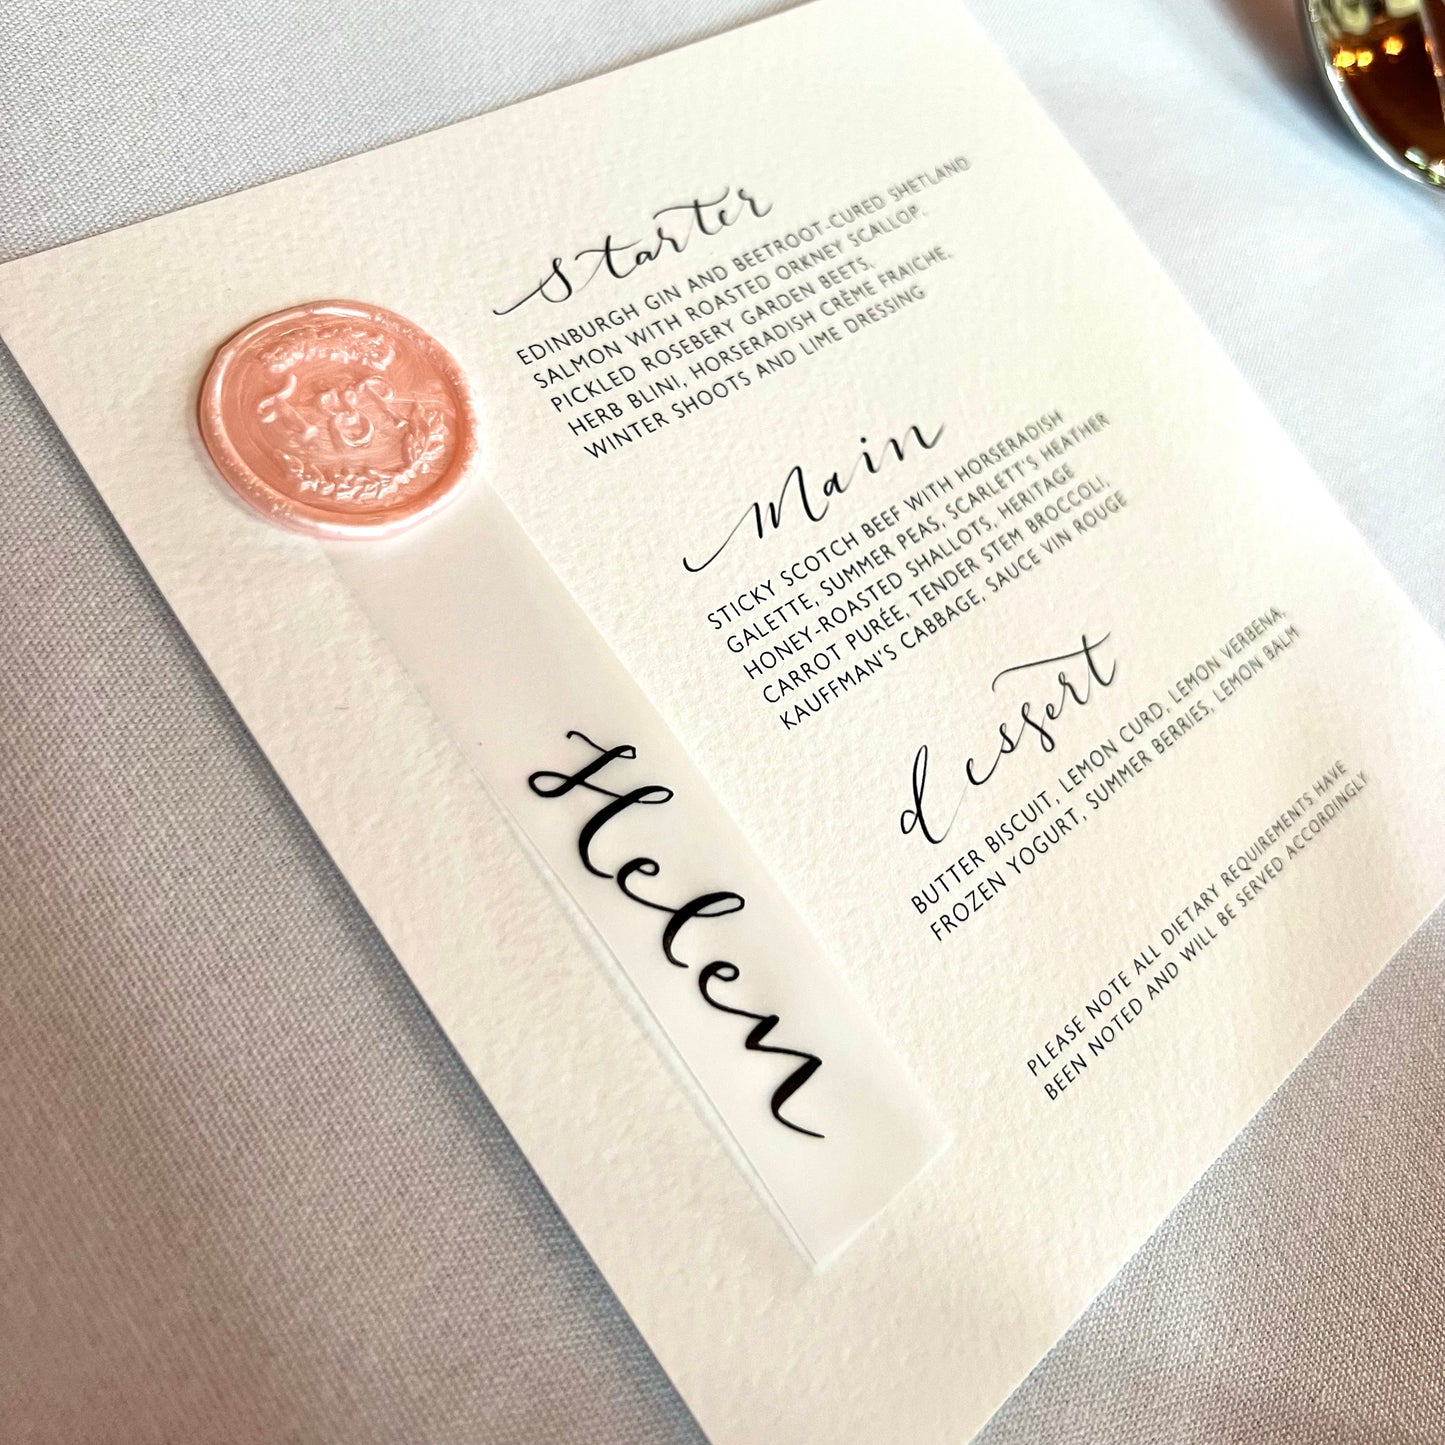 starter
EDINBURGH GIN AND BEETROOT-CURED SHETLAND
SALMON WITH ROASTED ORKNEY SCALLOP.
PICKLED ROSEBERY GARDEN BEETS.
HERB BLINI, HORSERADISH CRÈME FRAICHE.
WINTER SHOOTS AND LIME DRESSING
Main
STICKY SCOTCH BEEF WITH HORSERADISH
GALETTE, SUMMER PEAS, SCARLETT'S HEATHER
HONEY-ROASTED SHALLOTS, HERITAGE
CARROT PURÉE, TENDER STEM BROCCOLI,
KAUFFMAN'S CABBAGE, SAUCE VIN ROUGE
dessert
BUTTER BISCUIT, LEMON CURD, LEMON VERBENA,
FROZEN YOGURT, SUMMER BERRIES, LEMON BALM
PLEASE NOTE ALL DIETARY REQUIREMENTS HAVE
BEEN NOTED AND WILL BE SERVED ACCORDINGLY
Helen